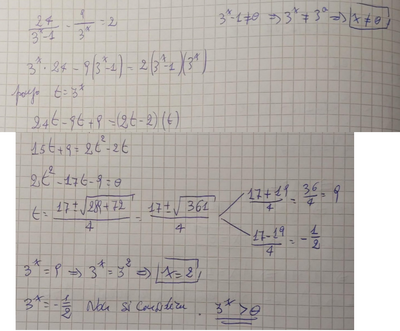 24/(3^x-1) - 9/3^x = 2    3^x-1≠0 ⇒ 3^x≠3^0 ⇒ x≠0
3^x·24 - 9(3^x-1) = 2(3^x-1)(3^x)
pongo t=3^x
24t-9t+9=(2t-2)(t)
15t+9=2t^2-2t
2t^2-17t-9=0
t = (17±√(289+72))/4 = (17±√361)/4
(17+19)/4 = 36/4 = 9
(17-19)/4 = -1/2
3^x=9 ⇒ 3^x=3^2 ⇒ x=2
3^x=-1/2 Non si considera. 3^x>0